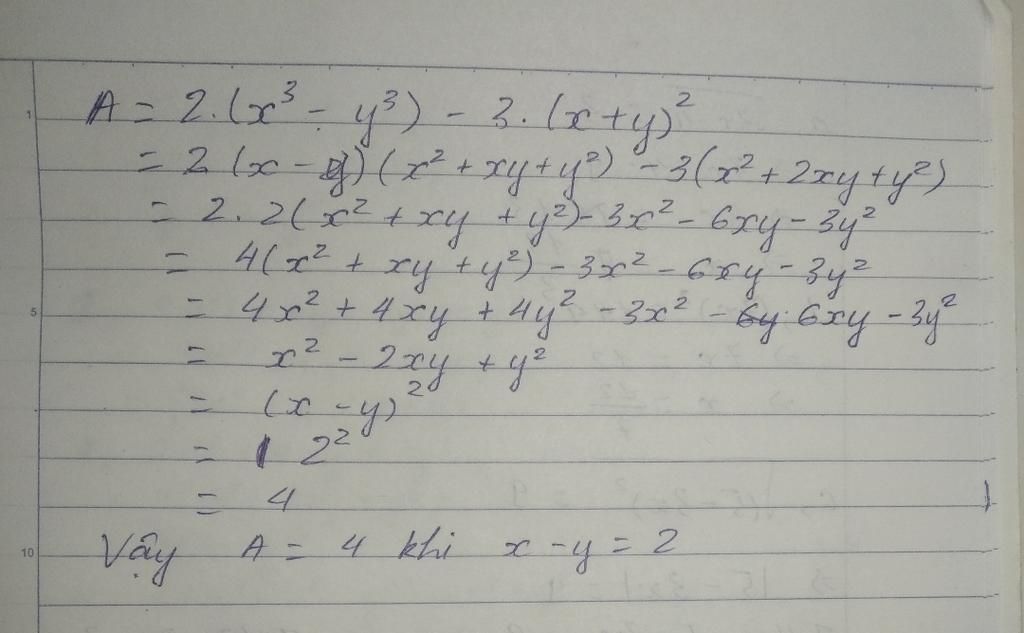 A = 2.(x³ - y³) - 3.(x+y)²
= 2 (x - y)(x² + xy + y²) - 3(x² + 2xy + y²)
= 2.2(x² + xy + y²) - 3x² - 6xy - 3y²
= 4(x² + xy + y²) - 3x² - 6xy - 3y²
= 4x² + 4xy + 4y² - 3x² - 6y 6xy - 3y²
= x² - 2xy + y²
= (x - y)²
= 2²
= 4
Vậy A = 4 khi x - y = 2